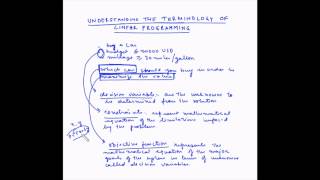 UNDERSTANDING THE TERMINOLOGY OF
LINEAR PROGRAMMING
buy a Car
budget $ 30000 USD
mileage ≥ 30 miles/gallon
Which car should you buy in order to
maximize the value
decision variable - are the unknowns to
be determined from the solution
constraints - represent mathematical
equation of the limitations imposed
by the problem
objective function - represents the
mathematical equation of the major
goals of the system in terms of unknowns
called decision variables.